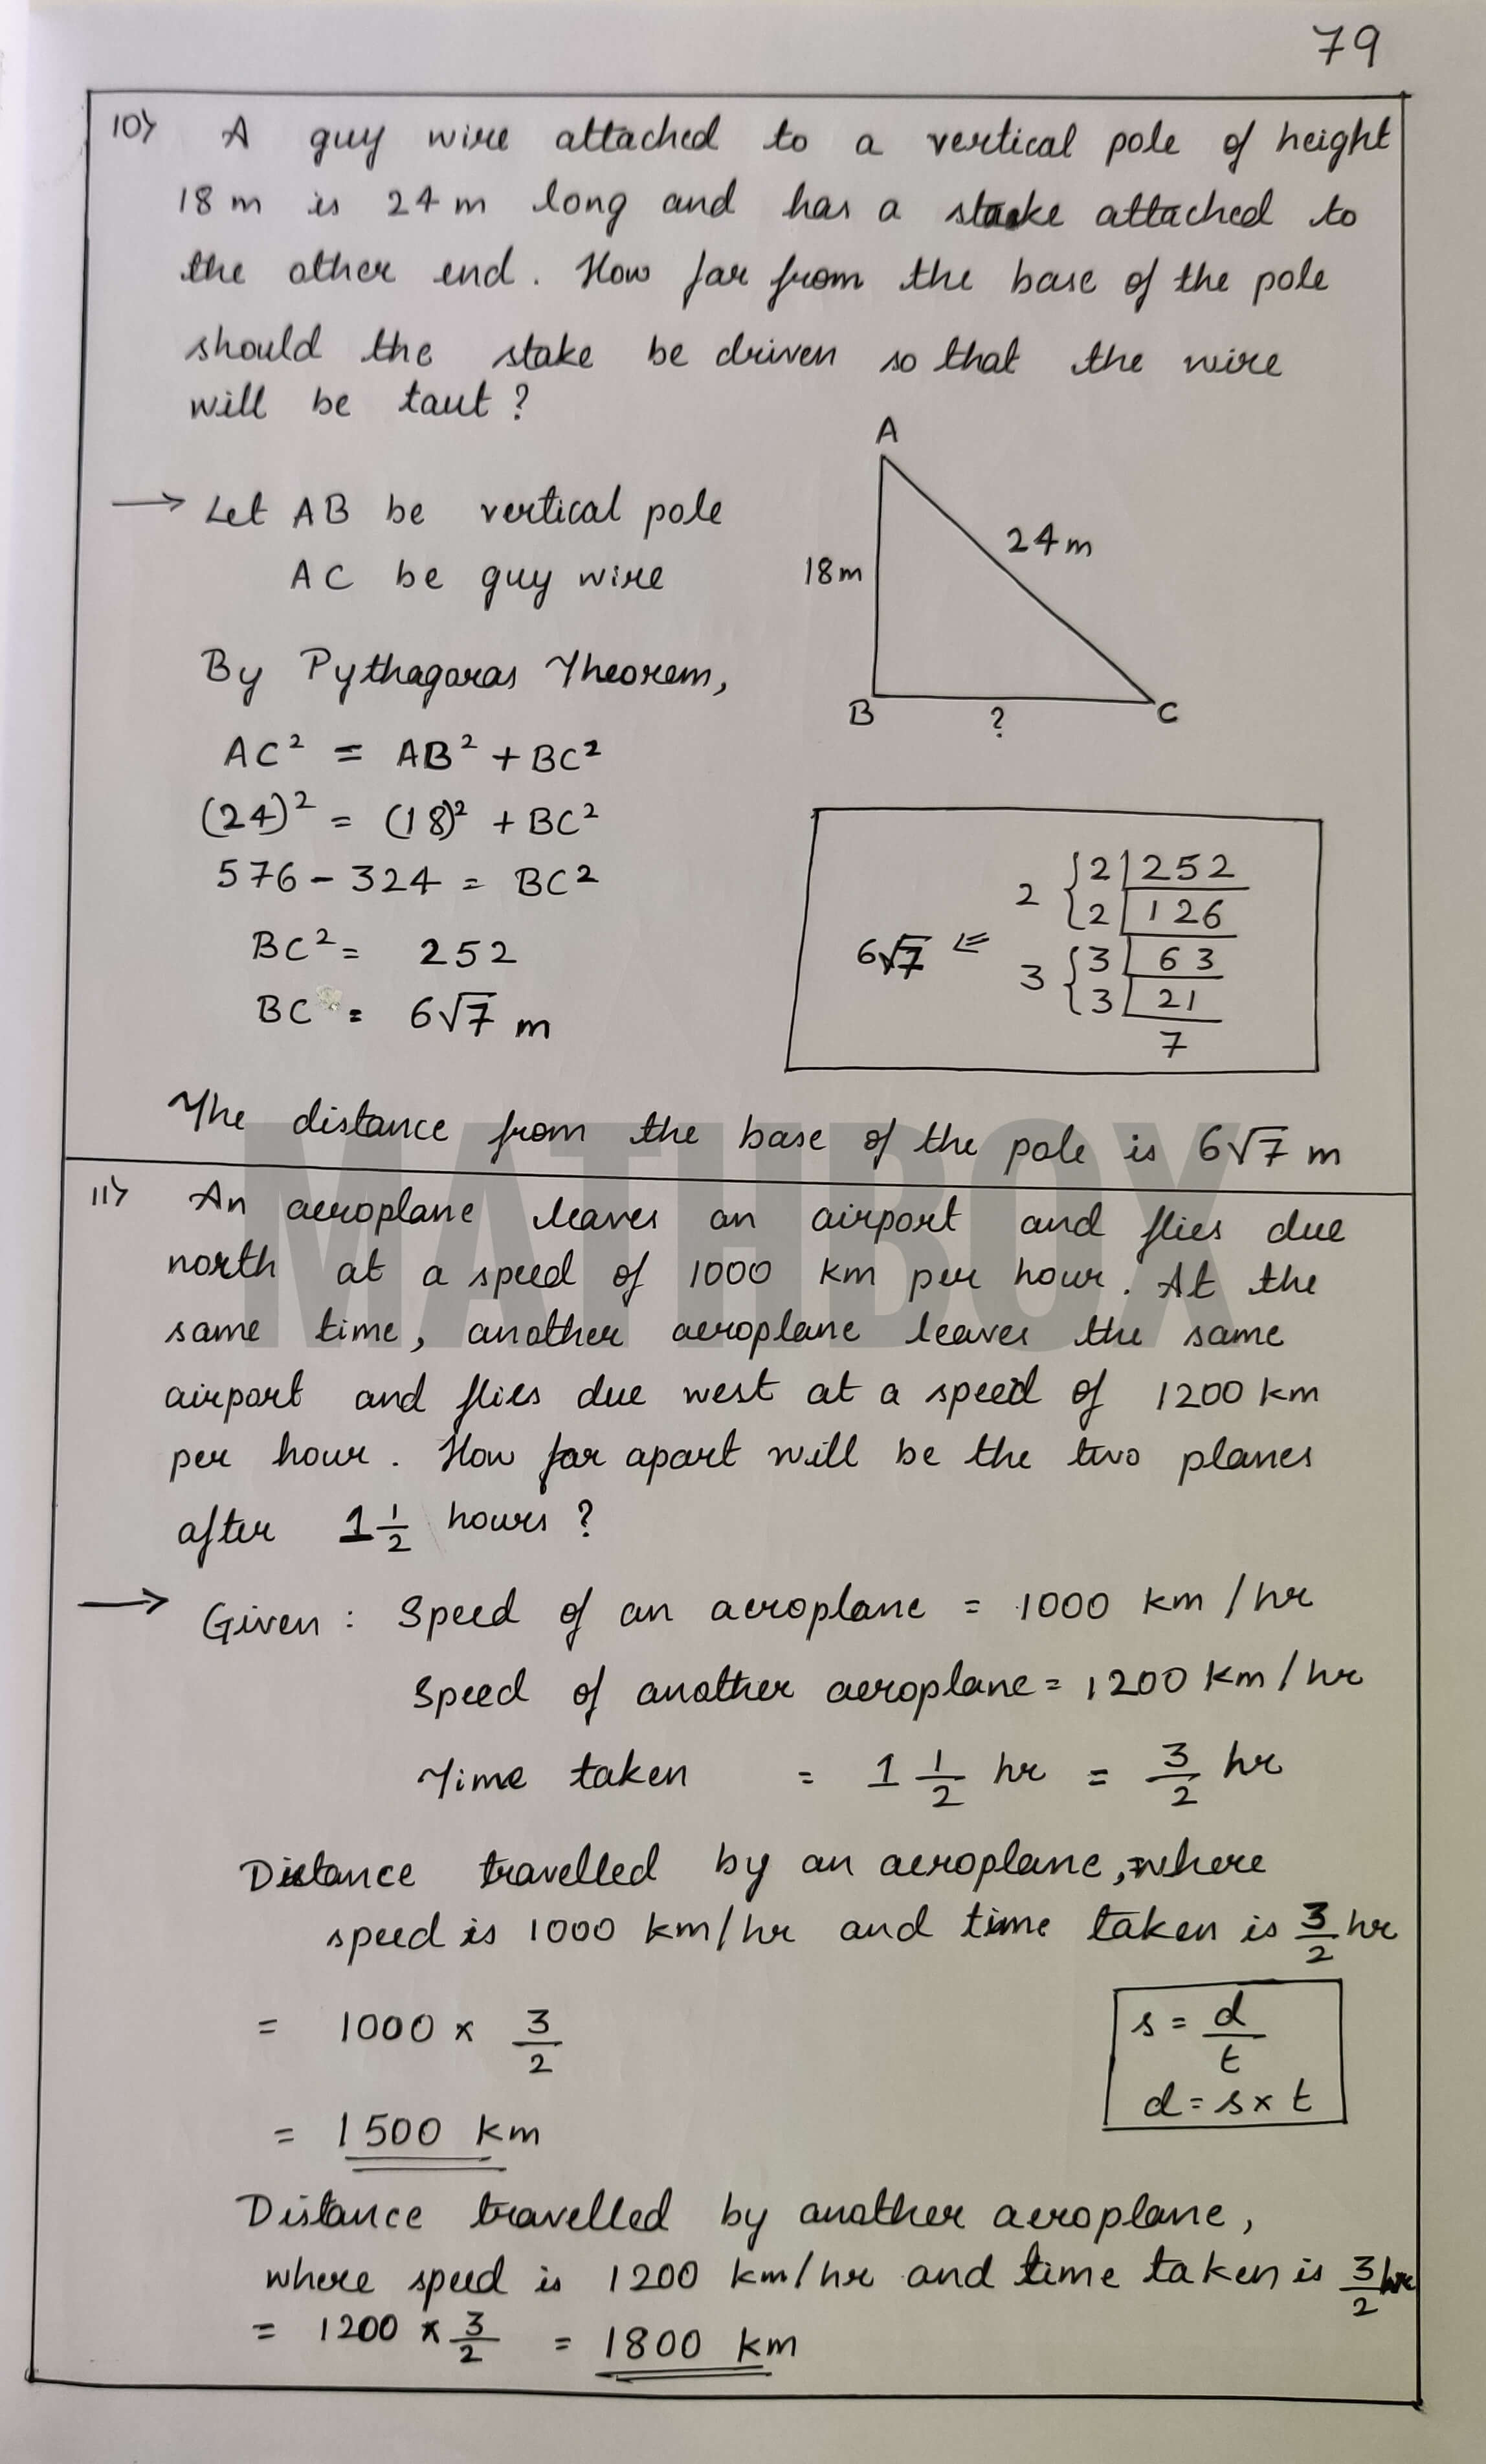 79
10) A guy wire attached to a vertical pole of height
18 m is 24 m long and has a stake attached to
the other end. How far from the base of the pole
should the stake be driven so that the wire
will be taut ?
A
→ Let AB be vertical pole
24 m
AC be guy wire
18 m
By Pythagoras Theorem,
B ? C
AC² = AB² + BC²
(24)² = (18)² + BC²
576 - 324 = BC²
BC² = 252
BC = 6√7 m
2 { 2 | 252
2 | 126
6√7 ⇐ 3 { 3 | 63
3 | 21
7
The distance from the base of the pole is 6√7 m
MATHBOX
11) An aeroplane leaves an airport and flies due
north at a speed of 1000 km per hour. At the
same time, another aeroplane leaves the same
airport and flies due west at a speed of 1200 km
per hour. How far apart will be the two planes
after 1 1/2 hours ?
→ Given : Speed of an aeroplane = 1000 km/hr
Speed of another aeroplane = 1200 km/hr
Time taken = 1 1/2 hr = 3/2 hr
Distance travelled by an aeroplane, where
speed is 1000 km/hr and time taken is 3/2 hr
= 1000 × 3/2
s = d/t
d = s × t
= 1500 km
Distance travelled by another aeroplane,
where speed is 1200 km/hr and time taken is 3/2 hr
= 1200 × 3/2 = 1800 km